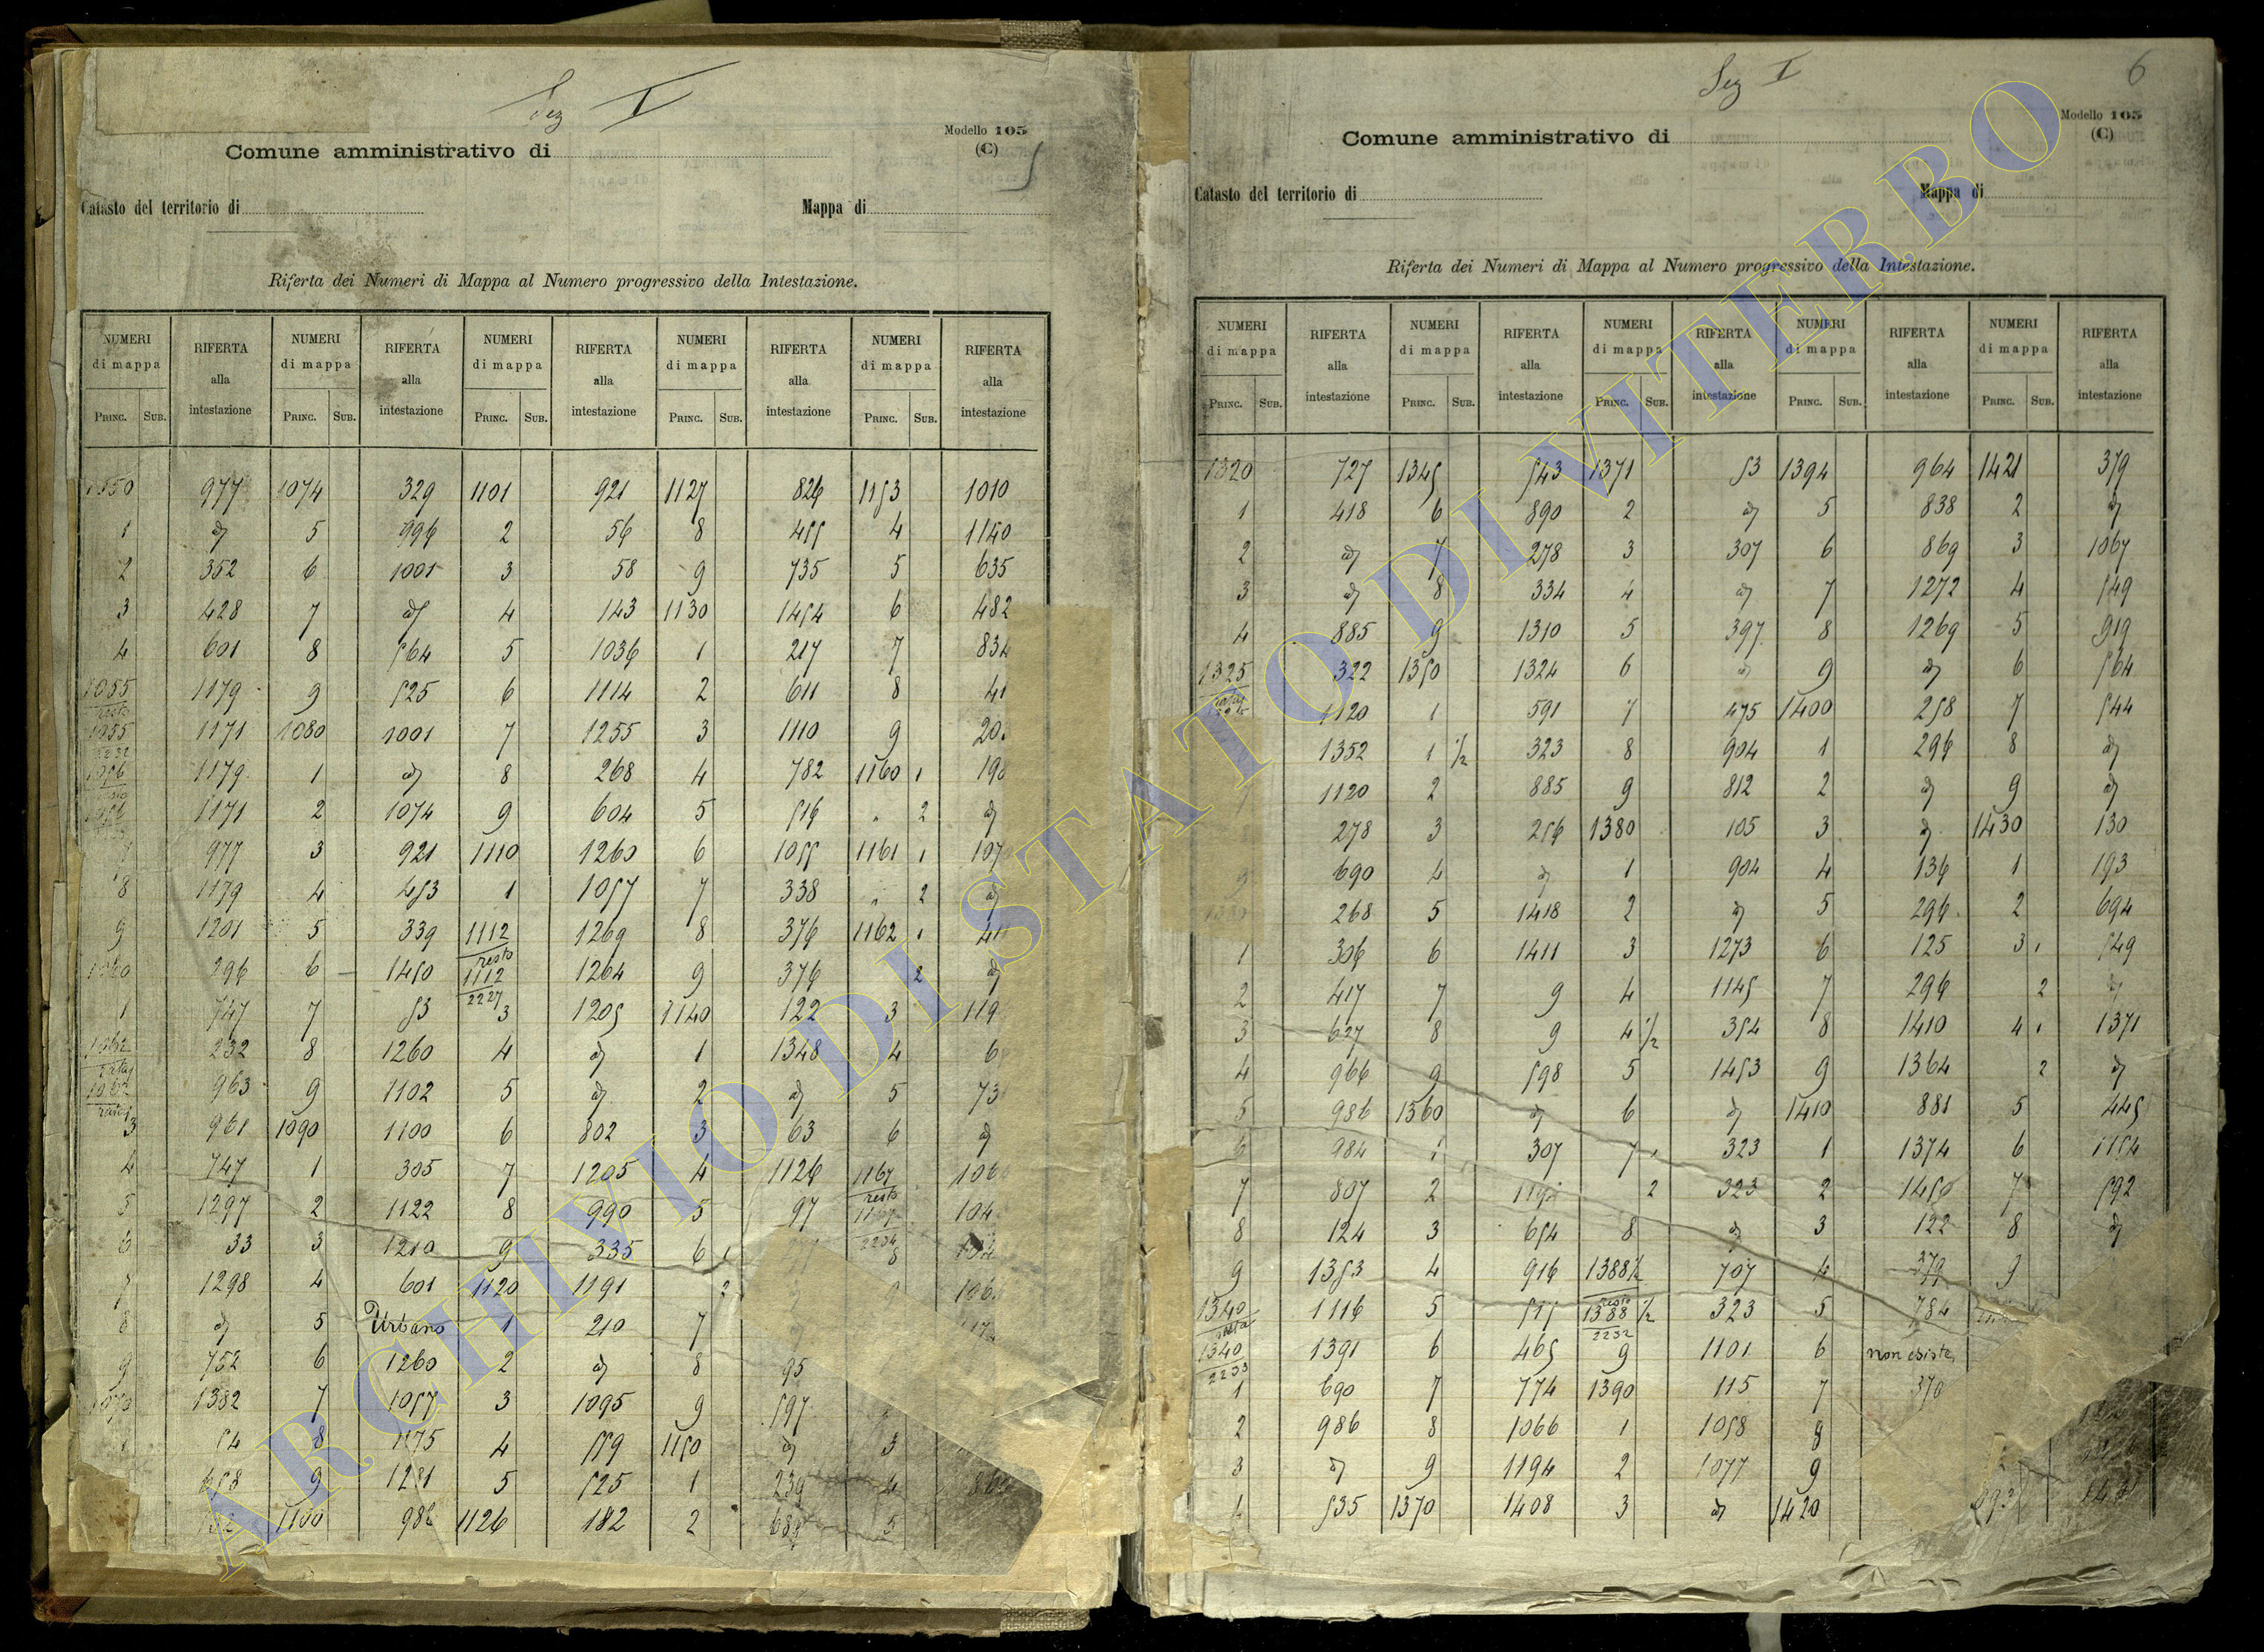 Sez I
Modello 105
(C)
5
Comune amministrativo di
Catasto del territorio di
Mappa di
Riferta dei Numeri di Mappa al Numero progressivo della Intestazione.
NUMERI RIFERTA NUMERI RIFERTA NUMERI RIFERTA NUMERI RIFERTA NUMERI RIFERTA
di mappa alla di mappa alla di mappa alla di mappa alla di mappa alla
PRINC. SUB. intestazione PRINC. SUB. intestazione PRINC. SUB. intestazione PRINC. SUB. intestazione PRINC. SUB. intestazione
1050 977 1074 329 1101 921 1127 826 1153 1010
1 d 5 996 2 56 8 455 4 1140
2 352 6 1001 3 58 9 735 5 635
3 428 7 d 4 143 1130 1454 6 482
4 601 8 564 5 1036 1 217 7 834
1055 resto 1179 9 525 6 1114 2 611 8 41
1055 2232 1171 1080 1001 7 1255 3 1110 9 20
1056 1179 1 d 8 268 4 782 1160 1 198
1056 1171 2 1074 9 604 5 516 " 2 d
977 3 921 1110 1260 6 1055 1161 1 107
8 1179 4 453 1 1057 7 338 " 2 d
9 1201 5 339 1112 resto 1269 8 376 1162 1 41
1060 296 6 1450 1112 2227 1264 9 376 2 d
1 747 7 53 3 1205 1140 122 3 119
1062 232 8 1260 4 d 1 1348 4 6
1062 963 9 1102 5 d 2 d 5 73
3 961 1090 1100 6 802 3 63 6 d
4 747 1 305 7 1205 4 1126 1167 resto 106
5 1297 2 1122 8 990 5 97 1167 2234 104
6 33 3 1210 9 335 6 1 8
7 1298 4 601 1120 1191 2 9 106
8 d 5 Urbano 1 210 7
9 752 6 1260 2 d 8 95
1070 1382 7 1057 3 1095 9 597
1 54 8 1175 4 559 1150 d 3
658 9 1281 5 525 1 239 4
1100 986 1126 182 2 689 5
Sez I
6
Modello 105
(C)
Comune amministrativo di
Catasto del territorio di
Mappa di
Riferta dei Numeri di Mappa al Numero progressivo della Intestazione.
NUMERI RIFERTA NUMERI RIFERTA NUMERI RIFERTA NUMERI RIFERTA NUMERI RIFERTA
di mappa alla di mappa alla di mappa alla di mappa alla di mappa alla
PRINC. SUB. intestazione PRINC. SUB. intestazione PRINC. SUB. intestazione PRINC. SUB. intestazione PRINC. SUB. intestazione
1320 727 1345 543 1371 53 1394 964 1421 379
1 418 6 890 2 d 5 838 2 d
2 d 7 278 3 307 6 869 3 1067
3 d 8 334 4 d 7 1272 4 549
4 885 9 1310 5 397 8 1269 5 919
1325 322 1350 1324 6 d 9 d 6 564
1120 1 591 7 475 1400 258 7 544
1352 1 1/2 323 8 904 1 296 8 d
1120 2 885 9 812 2 d 9 d
278 3 256 1380 105 3 d 1430 130
9 690 4 d 1 904 4 136 1 193
1330 268 5 1418 2 d 5 296 2 694
1 306 6 1411 3 1273 6 125 3 1 549
2 417 7 9 4 1145 7 296 2 d
3 627 8 9 4 1/2 354 8 1410 4 1 1371
4 966 9 598 5 1453 9 1364 2 d
5 986 1360 d 6 d 1410 881 5 445
6 984 1 307 7 1 323 1 1374 6 1154
7 807 2 2 323 2 1450 7 592
8 124 3 654 8 d 3 122 8 d
9 1353 4 916 1388 1/2 resto 707 4 379 9
1340 resto 1116 5 515 1388 1/2 2232 323 5 784
1340 2233 1391 6 465 9 1101 6 non esiste
1 690 7 774 1390 115 7 370
2 986 8 1066 1 1058 8
3 d 9 1194 2 1077 9
4 535 1370 1408 3 d 1420
ARCHIVIO DI STATO DI VITERBO